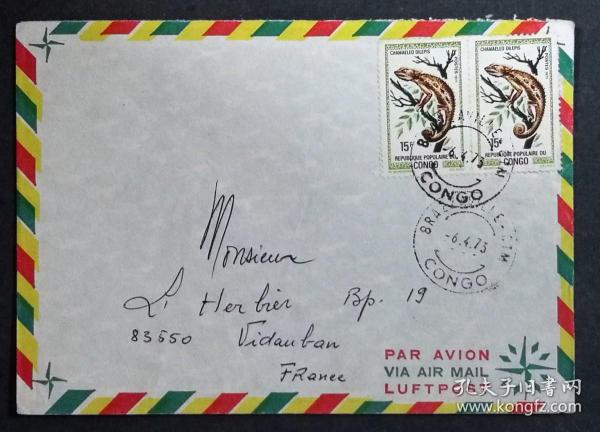 CHAMAELEO DILEPIS
POSTES 1971
15F
REPUBLIQUE POPULAIRE DU
CONGO
CHAMAELEO DILEPIS
POSTES 1971
15F
REPUBLIQUE POPULAIRE DU
CONGO
-6.4.73
CONGO
BRAZZAVILLE-
-6.4.73
CONGO
Monsieur
L'Herbier Bp. 19
83550 Vidauban
FRance
PAR AVION
VIA AIR MAIL
LUFTPOST
孔夫子旧书网
www.kongfz.com